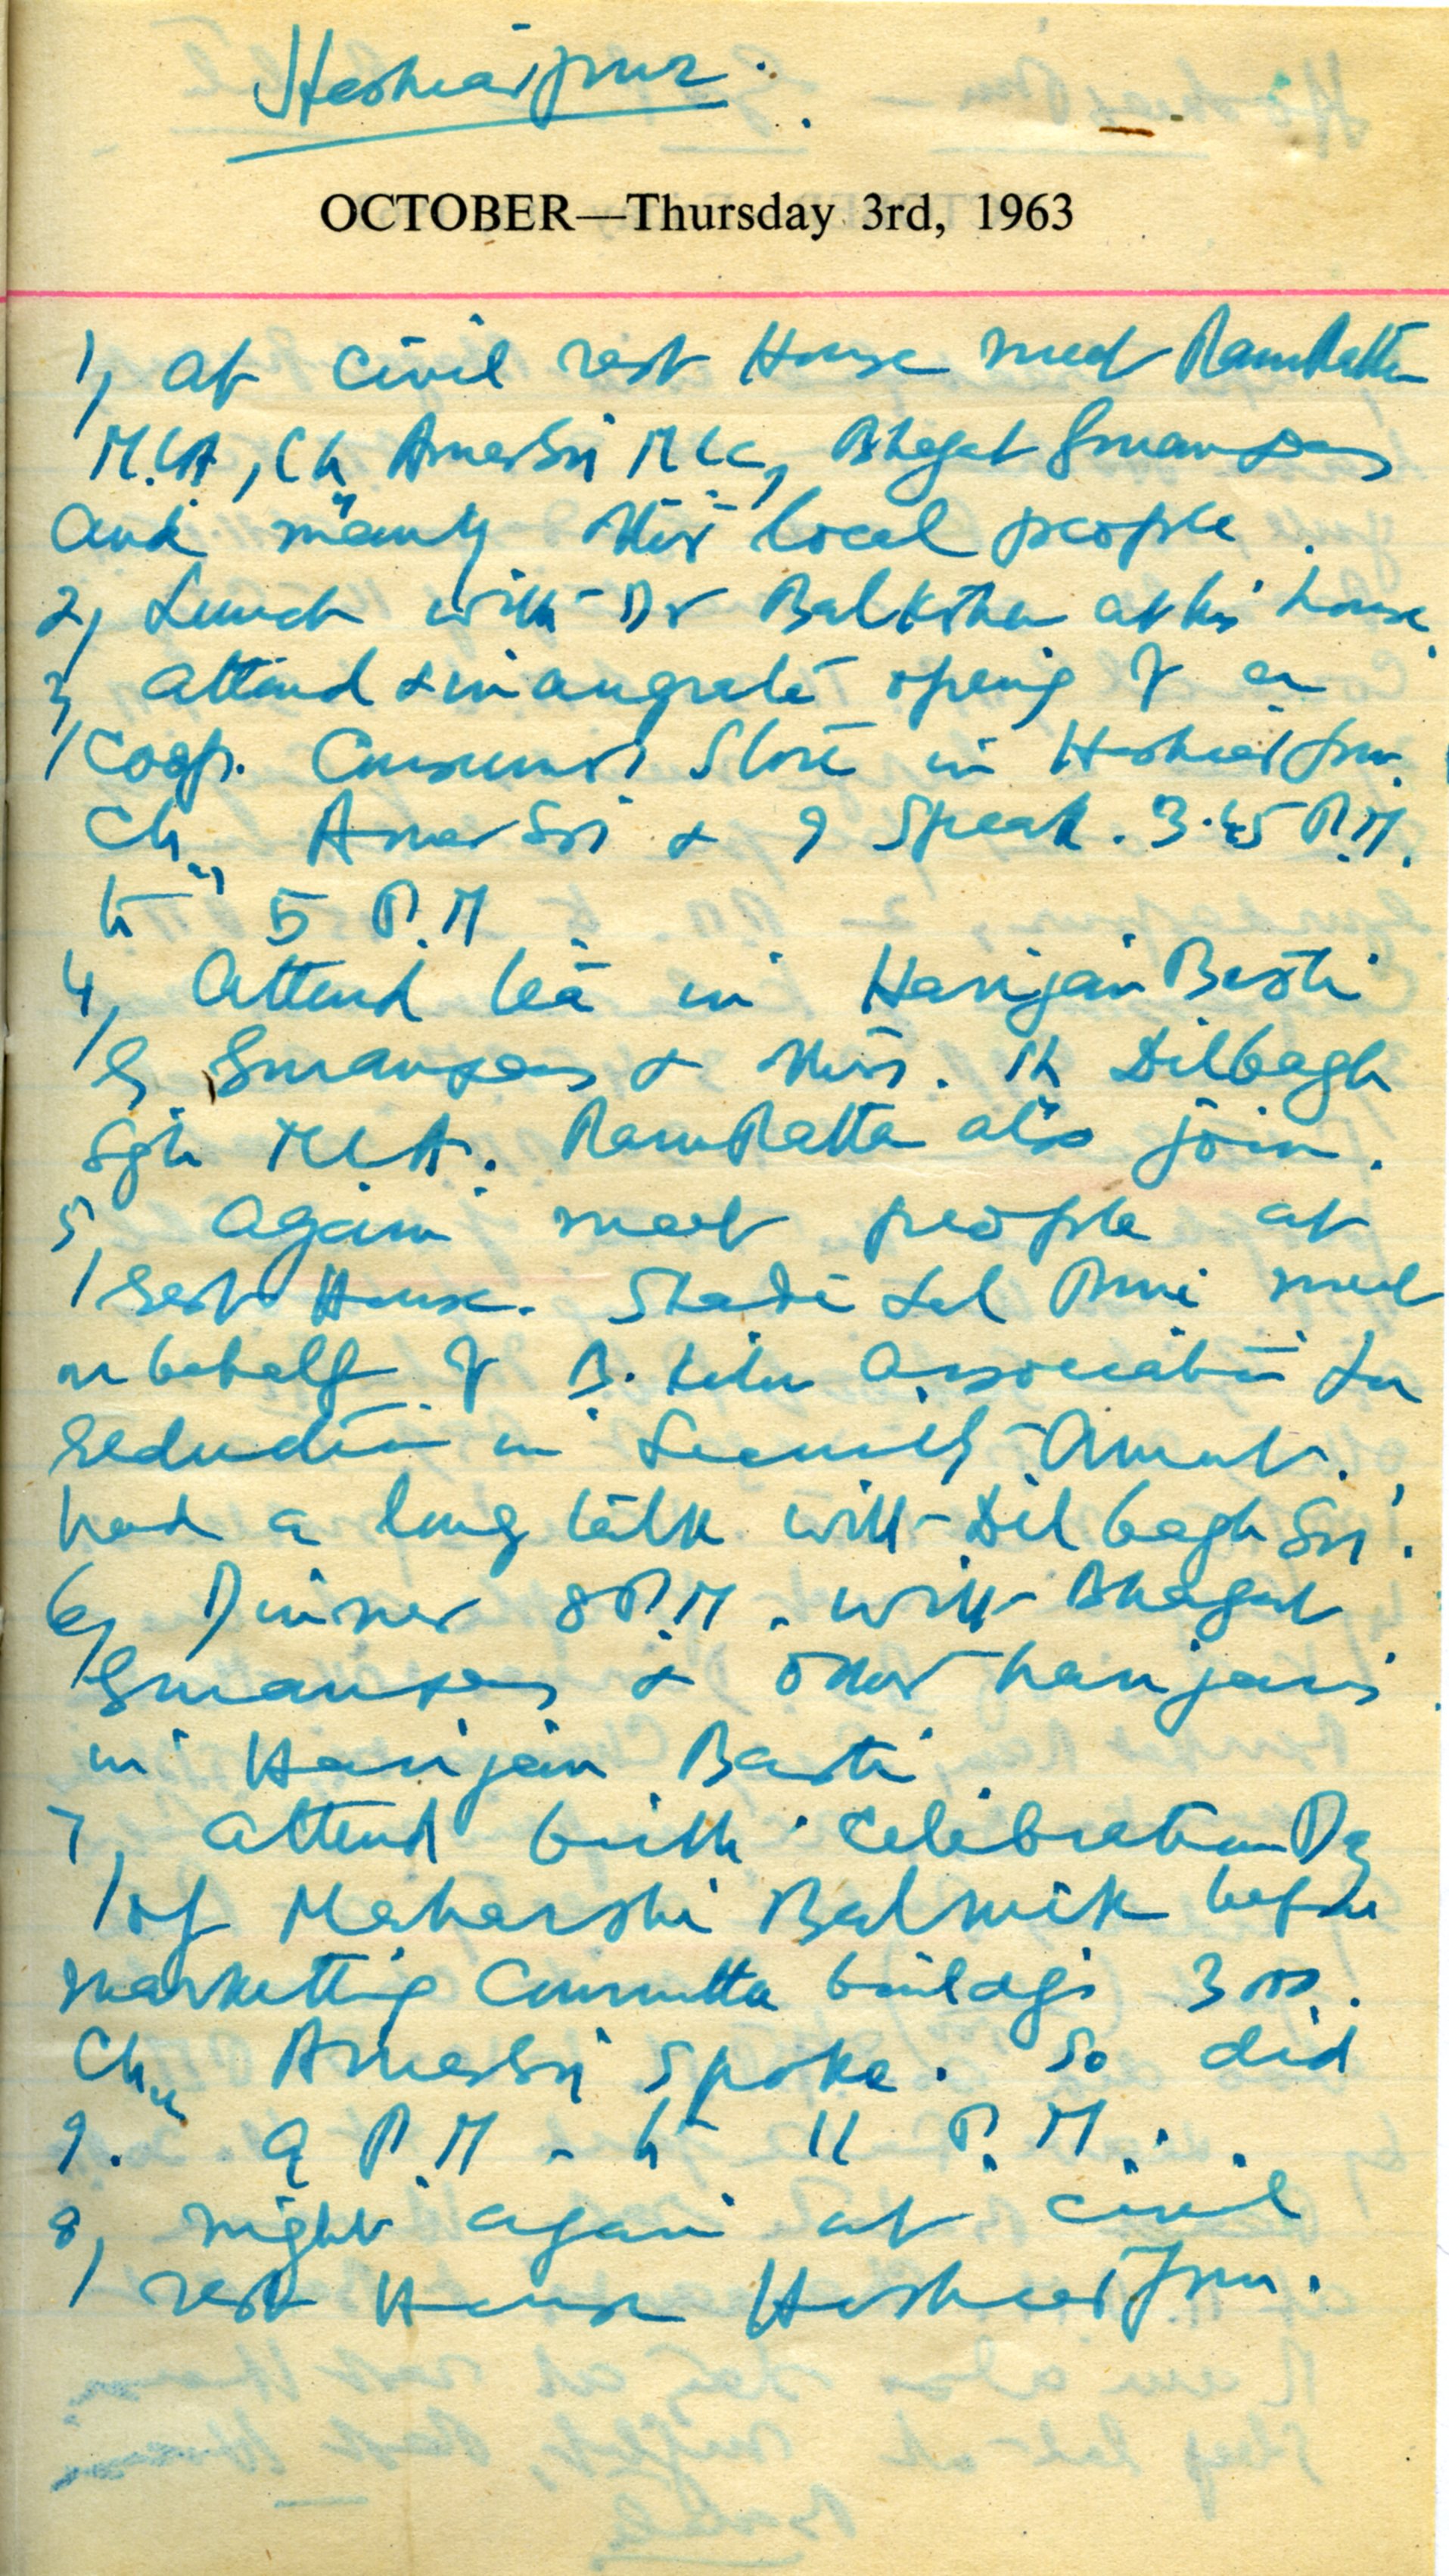 Hoshiarpur.
OCTOBER—Thursday 3rd, 1963
1, at civil rest House meet Ram Rattan
M.L.A, Ch Amar Sri MLC, Bhagat Guran Das
and many other local people.
2, Lunch with Dr Bal Kishan at his house.
3, attend & inaugrate opening of a
Coop. Consumers Store in Hoshiarpur.
Ch. Amar Sri & I Speak. 3.45 P.M.
to 5 P.M
4, Attend tea in Harijan Basti
by Guran Das & others. Ch Dilbagh
Sgh MLA. Ram Rattan also join.
5, again meet people at
rest House. Shadi Lal Puri meet
on behalf of B. Kiln Association for
reduction in Security Amount.
had a long talk with Dilbagh Sri.
6, Dinner 8 P.M. with Bhagat
Guran Das & other harijans
in Harijan Basti.
7, attend birth celebration Day
of Maharshi Balmik before
marketting Committee buildgs
Ch. Amar Sri spoke. So did
I. 9 P.M - to 11 P.M.
8, night again at civil
rest House Hoshiarpur.